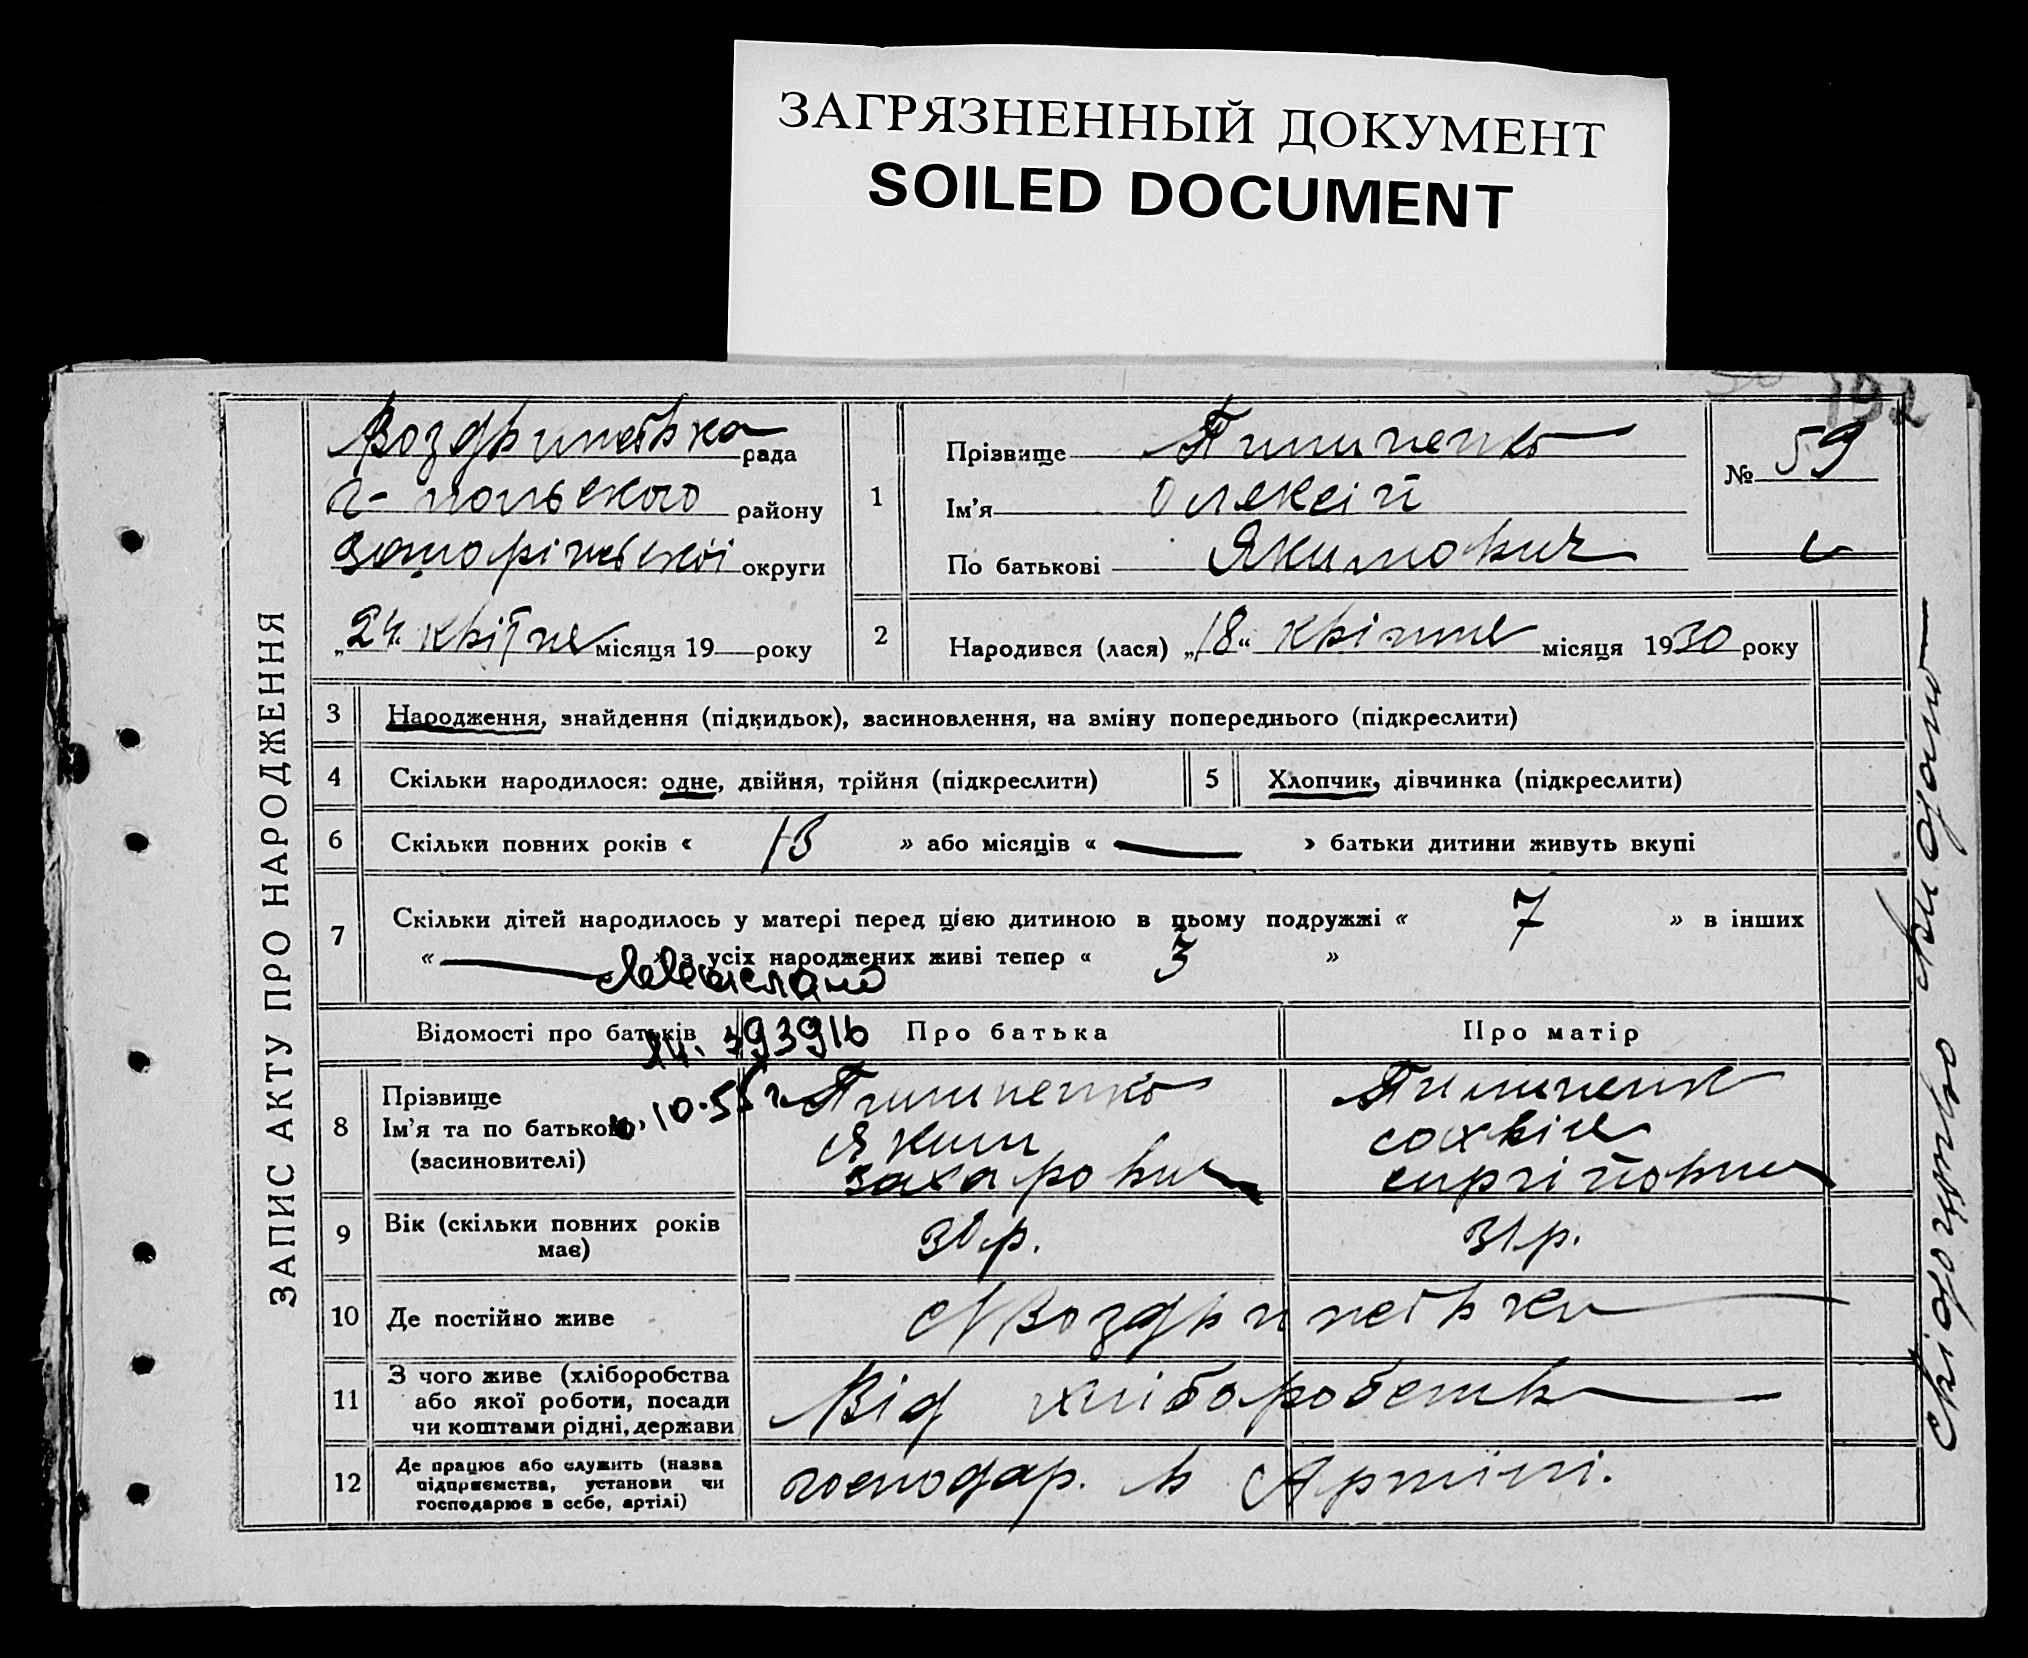 ЗАГРЯЗНЕННЫЙ ДОКУМЕНТ
SOILED DOCUMENT
192
ЗАПИС АКТУ ПРО НАРОДЖЕННЯ
Воздвиженська рада
району
Запорізької округи
„24“ квітня місяця 19 року
1
Прізвище
Ім’я Олексій
По батькові Якимович
№ 59
2
Народився (лася) „18“ квітня місяця 1930 року
3 Народження, знайдення (підкидьок), засиновлення, на зміну попереднього (підкреслити)
4 Скільки народилося: одне, двійня, трійня (підкреслити)
5 Хлопчик, дівчинка (підкреслити)
6 Скільки повних років « 13 » або місяців « — » батьки дитини живуть вкупі
7 Скільки дітей народилось у матері перед цією дитиною в цьому подружжі « 7 » в інших
« — » з усіх народжених живі тепер « 3 »
393916
10.55 г.
Відомості про батьків
Про батька
Про матір
8 Прізвище
Ім’я та по батькові
(засиновителі)
Яким
Захарович
9 Вік (скільки повних років
має)
30 р.
31 р.
10 Де постійно живе
11 З чого живе (хліборобства
або якої роботи, посади
чи коштами рідні, держави
Від хліборобств
12 Де працює або служить (назва
підприємства, установи чи
господарює в себе, артілі)
господар. в Артілі.
Свідоцтво видано